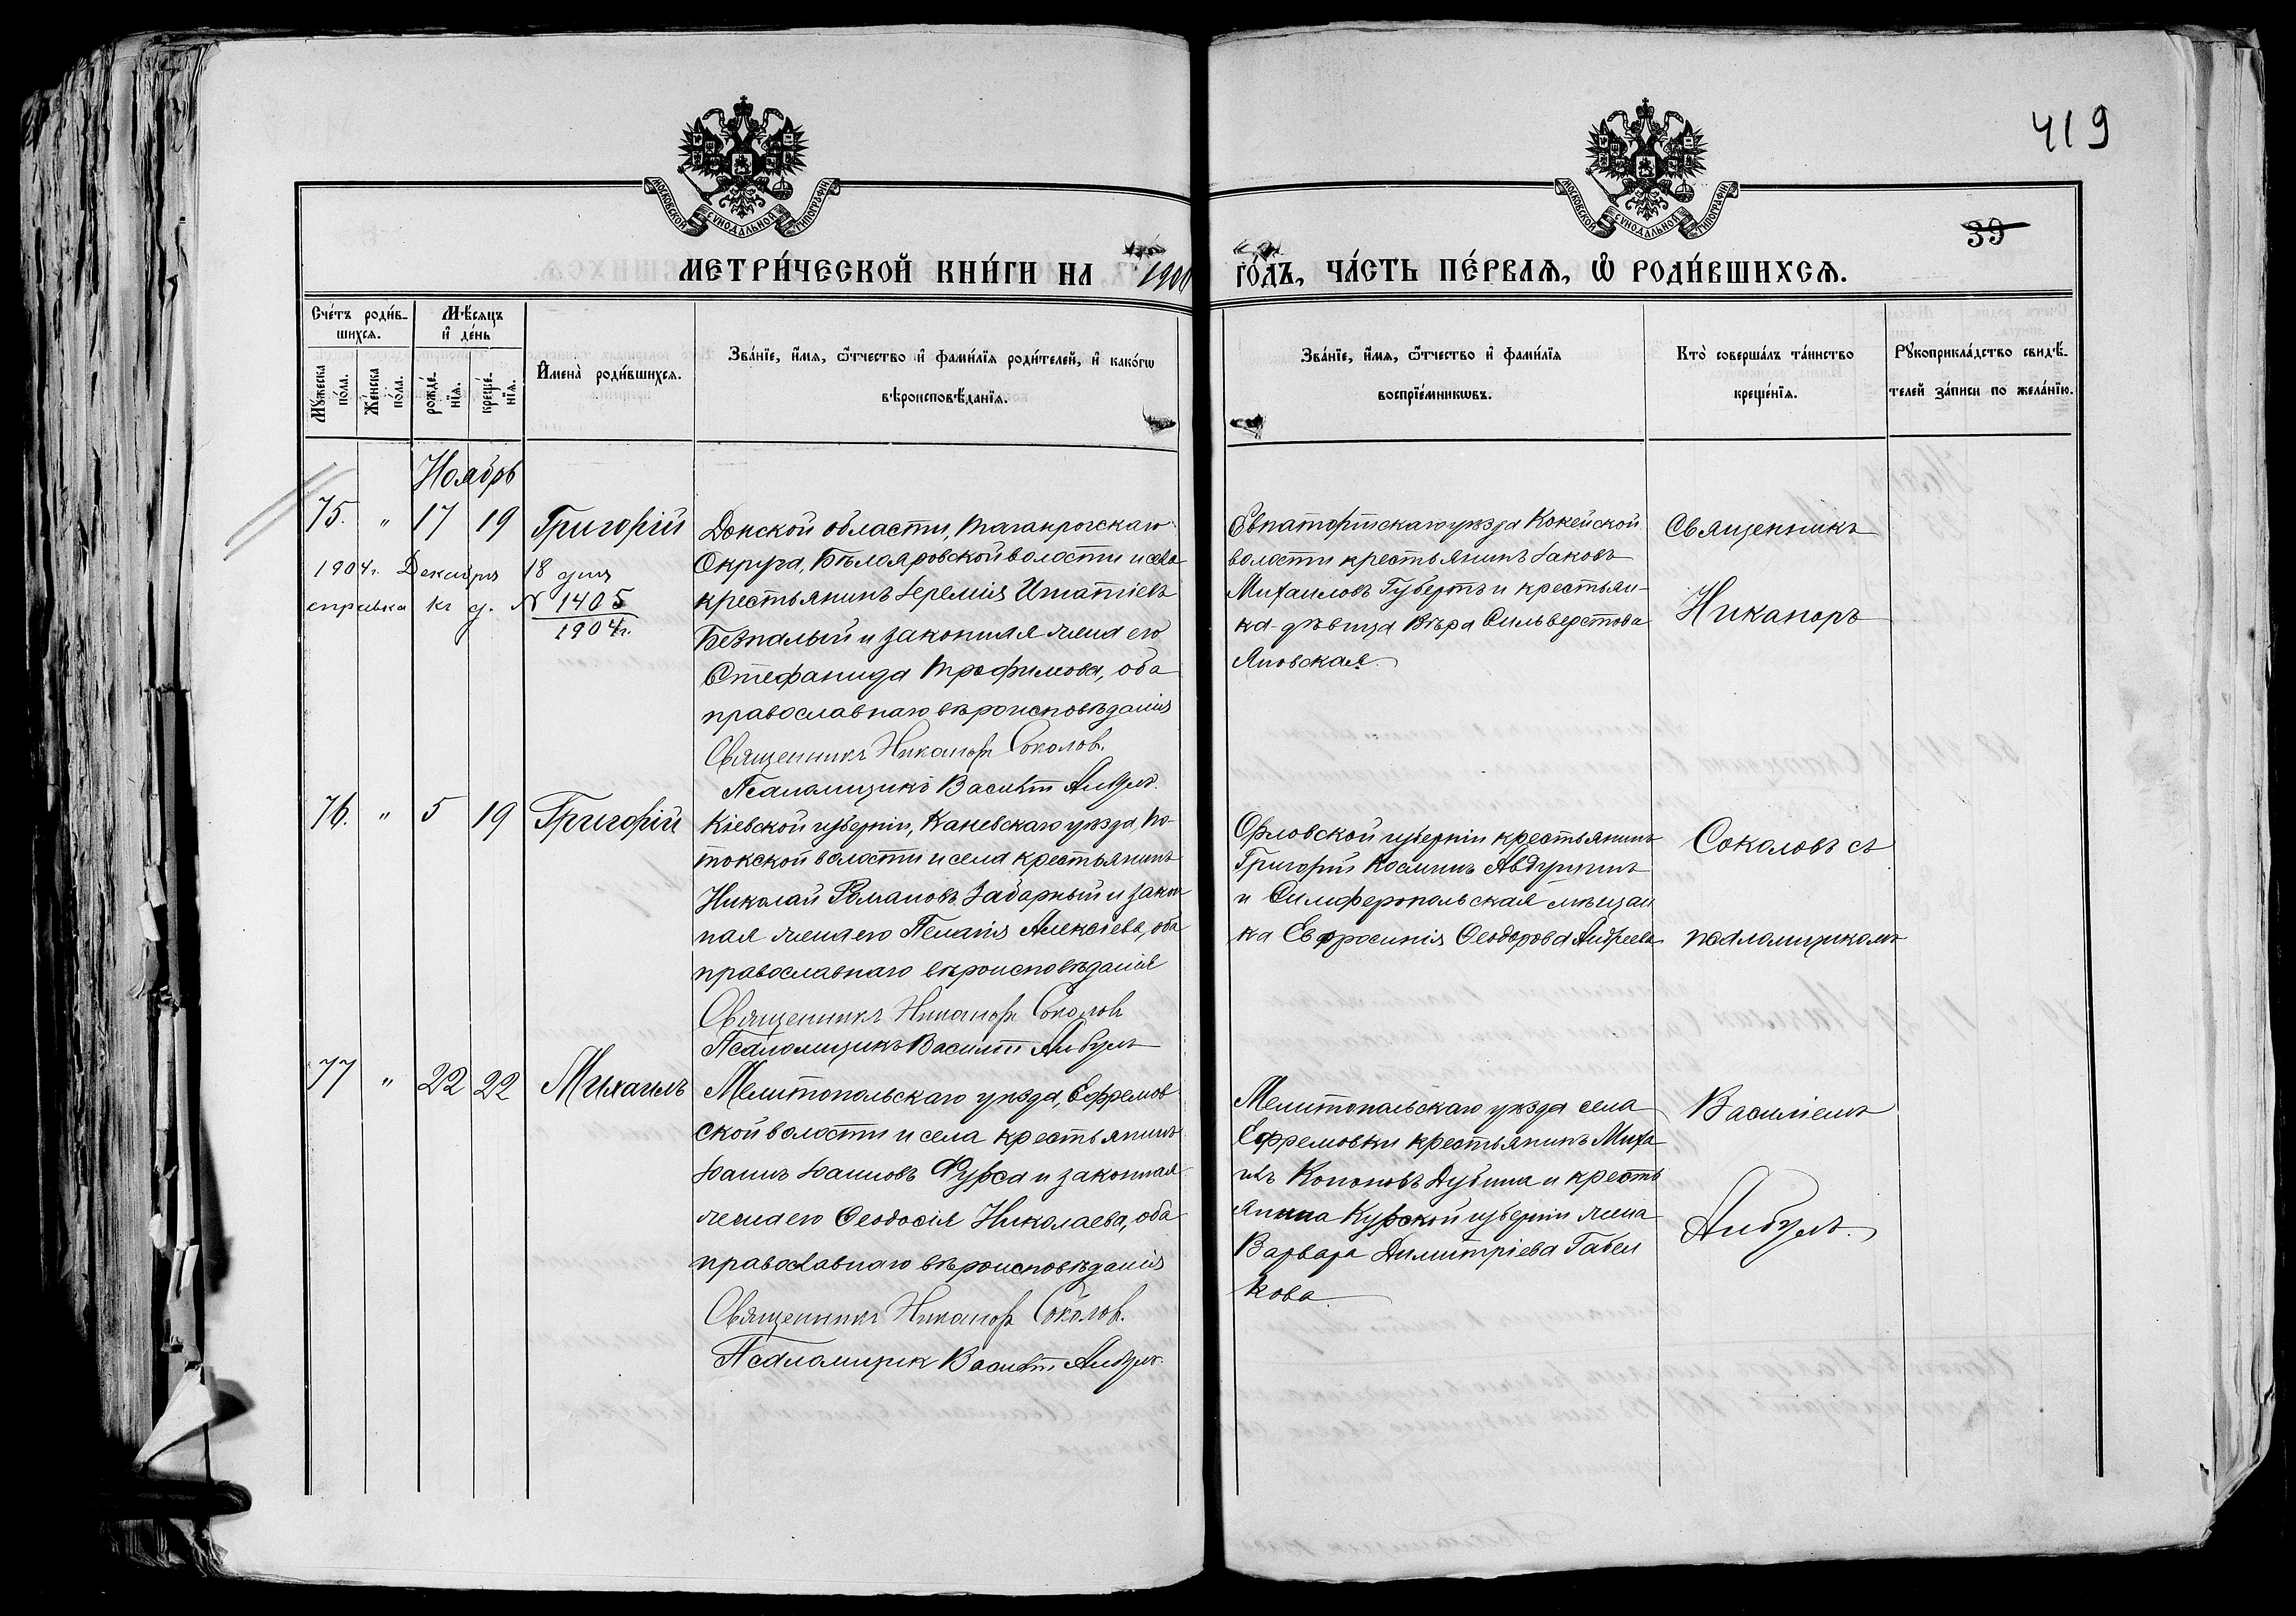 419
39
МОСКОВСКОЙ СѴНОДАЛЬНОЙ ТИПОГРАФІИ
МОСКОВСКОЙ СѴНОДАЛЬНОЙ ТИПОГРАФІИ
МЕТРИ́ЧЕСКОЙ КНИ́ГИ НА 1900 ГО́ДЪ, ЧА́СТЬ ПЕ́РВАѦ, Ѡ҆ РОДИ́ВШИХСѦ.
Сче́тъ роди́в-
шихсѧ.
Мѣ́сѧцъ
и҆ де́нь
Мꙋ́жеска по́ла.
Же́нска по́ла.
рожде́-
нїѧ.
креще́-
нїѧ.
И҆мена̀ роди́вшихсѧ.
Зва́нїе, и҆́мѧ, ѻ҆́тчество и҆ фами́лїѧ роди́телей, и҆ како́гѡ
вѣроисповѣ́данїѧ.
Зва́нїе, и҆́мѧ, ѻ҆́тчество и҆ фами́лїѧ
воспрїе́мникѡвъ.
Кто̀ соверша́лъ та́инство
креще́нїѧ.
Рꙋкоприкла́дство свидѣ́-
телей за́писи по жела́нїю.
Ноябрь
75. " 17 19 Григорій
1904г. Декабря 18 дня
справка къ д. № 1405
1904г.
Донской области, Таганрогскаго
Округа, Бѣлояровской волости и села
крестьянинъ Іеремія Игнатіевъ
Безпалый и законная жена его
Стефанида Трофимова, оба
православнаго вѣроисповѣданія
Священникъ Никаноръ Соколов.
Псаломщикъ Василій
Евпаторійскаго уѣзда Кокейской
волости крестьянинъ Іаковъ
Михаиловъ Губертъ и крестьян-
ка-дѣвица Вѣра Сильверстова
Яновская.
Священникъ
Никаноръ
76. " 5 19 Григорій
Кіевской губерніи, Каневскаго уѣзда, По-
токской волости и села крестьянинъ
Николай Романовъ Забарный и закон
ная жена его Пелагія Алексіева, оба
православнаго вѣроисповѣданія
Священникъ Никаноръ Соколов
Псаломщикъ Василій
Орловской губерніи крестьянинъ
Григорій Косминъ
и Симферопольская мѣщан
ка Евфросинія Ѳеодорова Андреева
Соколовъ съ
псаломщикомъ
77 " 22 22 Михаилъ
Мелитопольскаго уѣзда, Ефремов
ской волости и села крестьянинъ
Іоаннъ Іоанновъ Фурса и законная
жена его Ѳеодосія Николаева, оба
православнаго вѣроисповѣданія
Священникъ Никаноръ Соколов.
Псаломщик Василій
Мелитопольскаго уѣзда села
Ефремовки крестьянинъ Миха
илъ Кононовъ Дубина и кресть
янина Курской губерніи жена
Варвара Димитріева Габел
кова.
Василіемъ